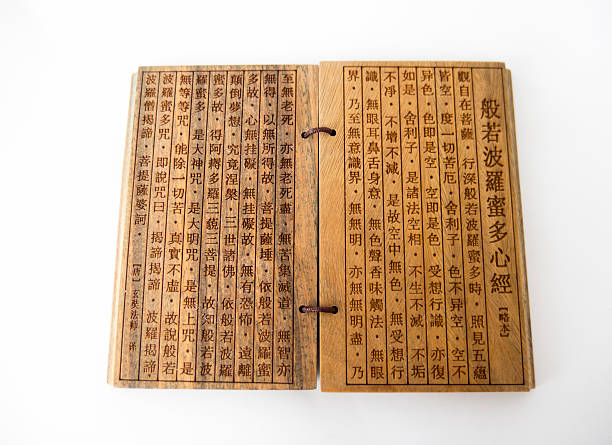 般若波羅蜜多心經【略本】
觀自在菩薩·行深般若波羅蜜多時·照見五蘊
皆空·度一切苦厄·舍利子·色不异空·空不
异色·色即是空·空即是色·受想行識·亦復
如是·舍利子·是諸法空相·不生不滅·不垢
不凈·不增不減·是故空中無色·無受想行
識·無眼耳鼻舌身意·無色聲香味觸法·無眼
界·乃至無意識界·無無明·亦無無明盡·乃
至無老死·亦無老死盡·無苦集滅道·無智亦
無得·以無所得故·菩提薩埵·依般若波羅蜜
多故·心無挂礙·無挂礙故·無有恐怖·遠離
顛倒夢想·究竟涅槃·三世諸佛·依般若波羅
蜜多故·得阿耨多羅三藐三菩提·故知般若波
羅蜜多·是大神咒·是大明咒·是無上咒·是
無等等咒·能除一切苦·真實不虛·故說般若
波羅蜜多咒·即說咒曰·揭諦揭諦·波羅揭諦
波羅僧揭諦·菩提薩婆訶
【唐】玄奘法師 译